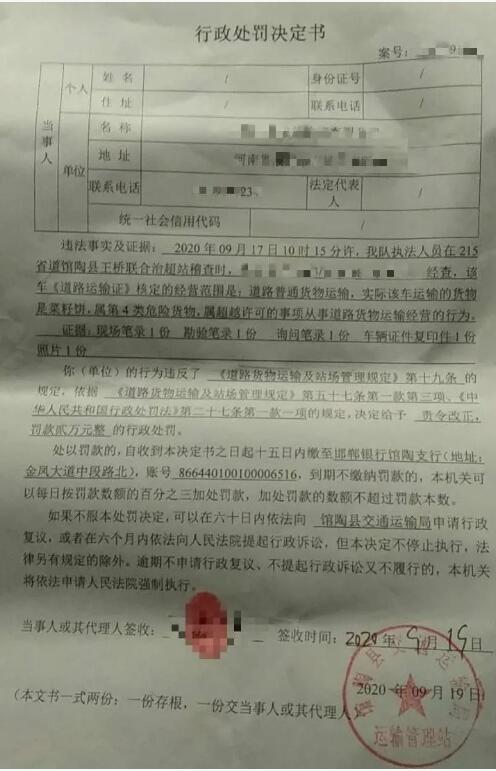 行政处罚决定书
案号: 9
当事人
个人
姓名 / 身份证号 /
住址 / 联系电话 /
单位
名称
地址 河南
联系电话 23 法定代表人 /
统一社会信用代码 /
违法事实及证据: 2020年09月17日10时15分许,我队执法人员在215
省道馆陶县王桥联合治超站稽查时, 经查,该
车《道路运输证》核定的经营范围是:道路普通货物运输,实际该车运输的货物
是菜籽饼,属第4类危险货物,属超越许可的事项从事道路货物运输经营的行为。
证据:现场笔录1份 勘验笔录1份 询问笔录1份 车辆证件复印件1份
照片1份
你(单位)的行为违反了《道路货物运输及站场管理规定》第十九条的
规定,依据 《道路货物运输及站场管理规定》第五十七条第一款第三项、《中
华人民共和国行政处罚法》第二十七条第一款一项的规定,决定给予 责令改正,
罚款贰万元整 的行政处罚。
处以罚款的,自收到本决定书之日起十五日内缴至邯郸银行馆陶支行(地址:
金凤大道中段路北),账号 866440100100006516,到期不缴纳罚款的,本机关可
以每日按罚款数额的百分之三加处罚款,加处罚款的数额不超过罚款本数。
如果不服本处罚决定,可以在六十日内依法向 馆陶县交通运输局申请行政
复议,或者在六个月内依法向人民法院提起行政诉讼,但本决定不停止执行,法
律另有规定的除外。逾期不申请行政复议、不提起行政诉讼又不履行的,本机关
将依法申请人民法院强制执行。
当事人或其代理人签收: 签收时间: 2020年9月19日
2020年09月19日
(本文书一式两份:一份存根,一份交当事人或其代理人
运输管理站